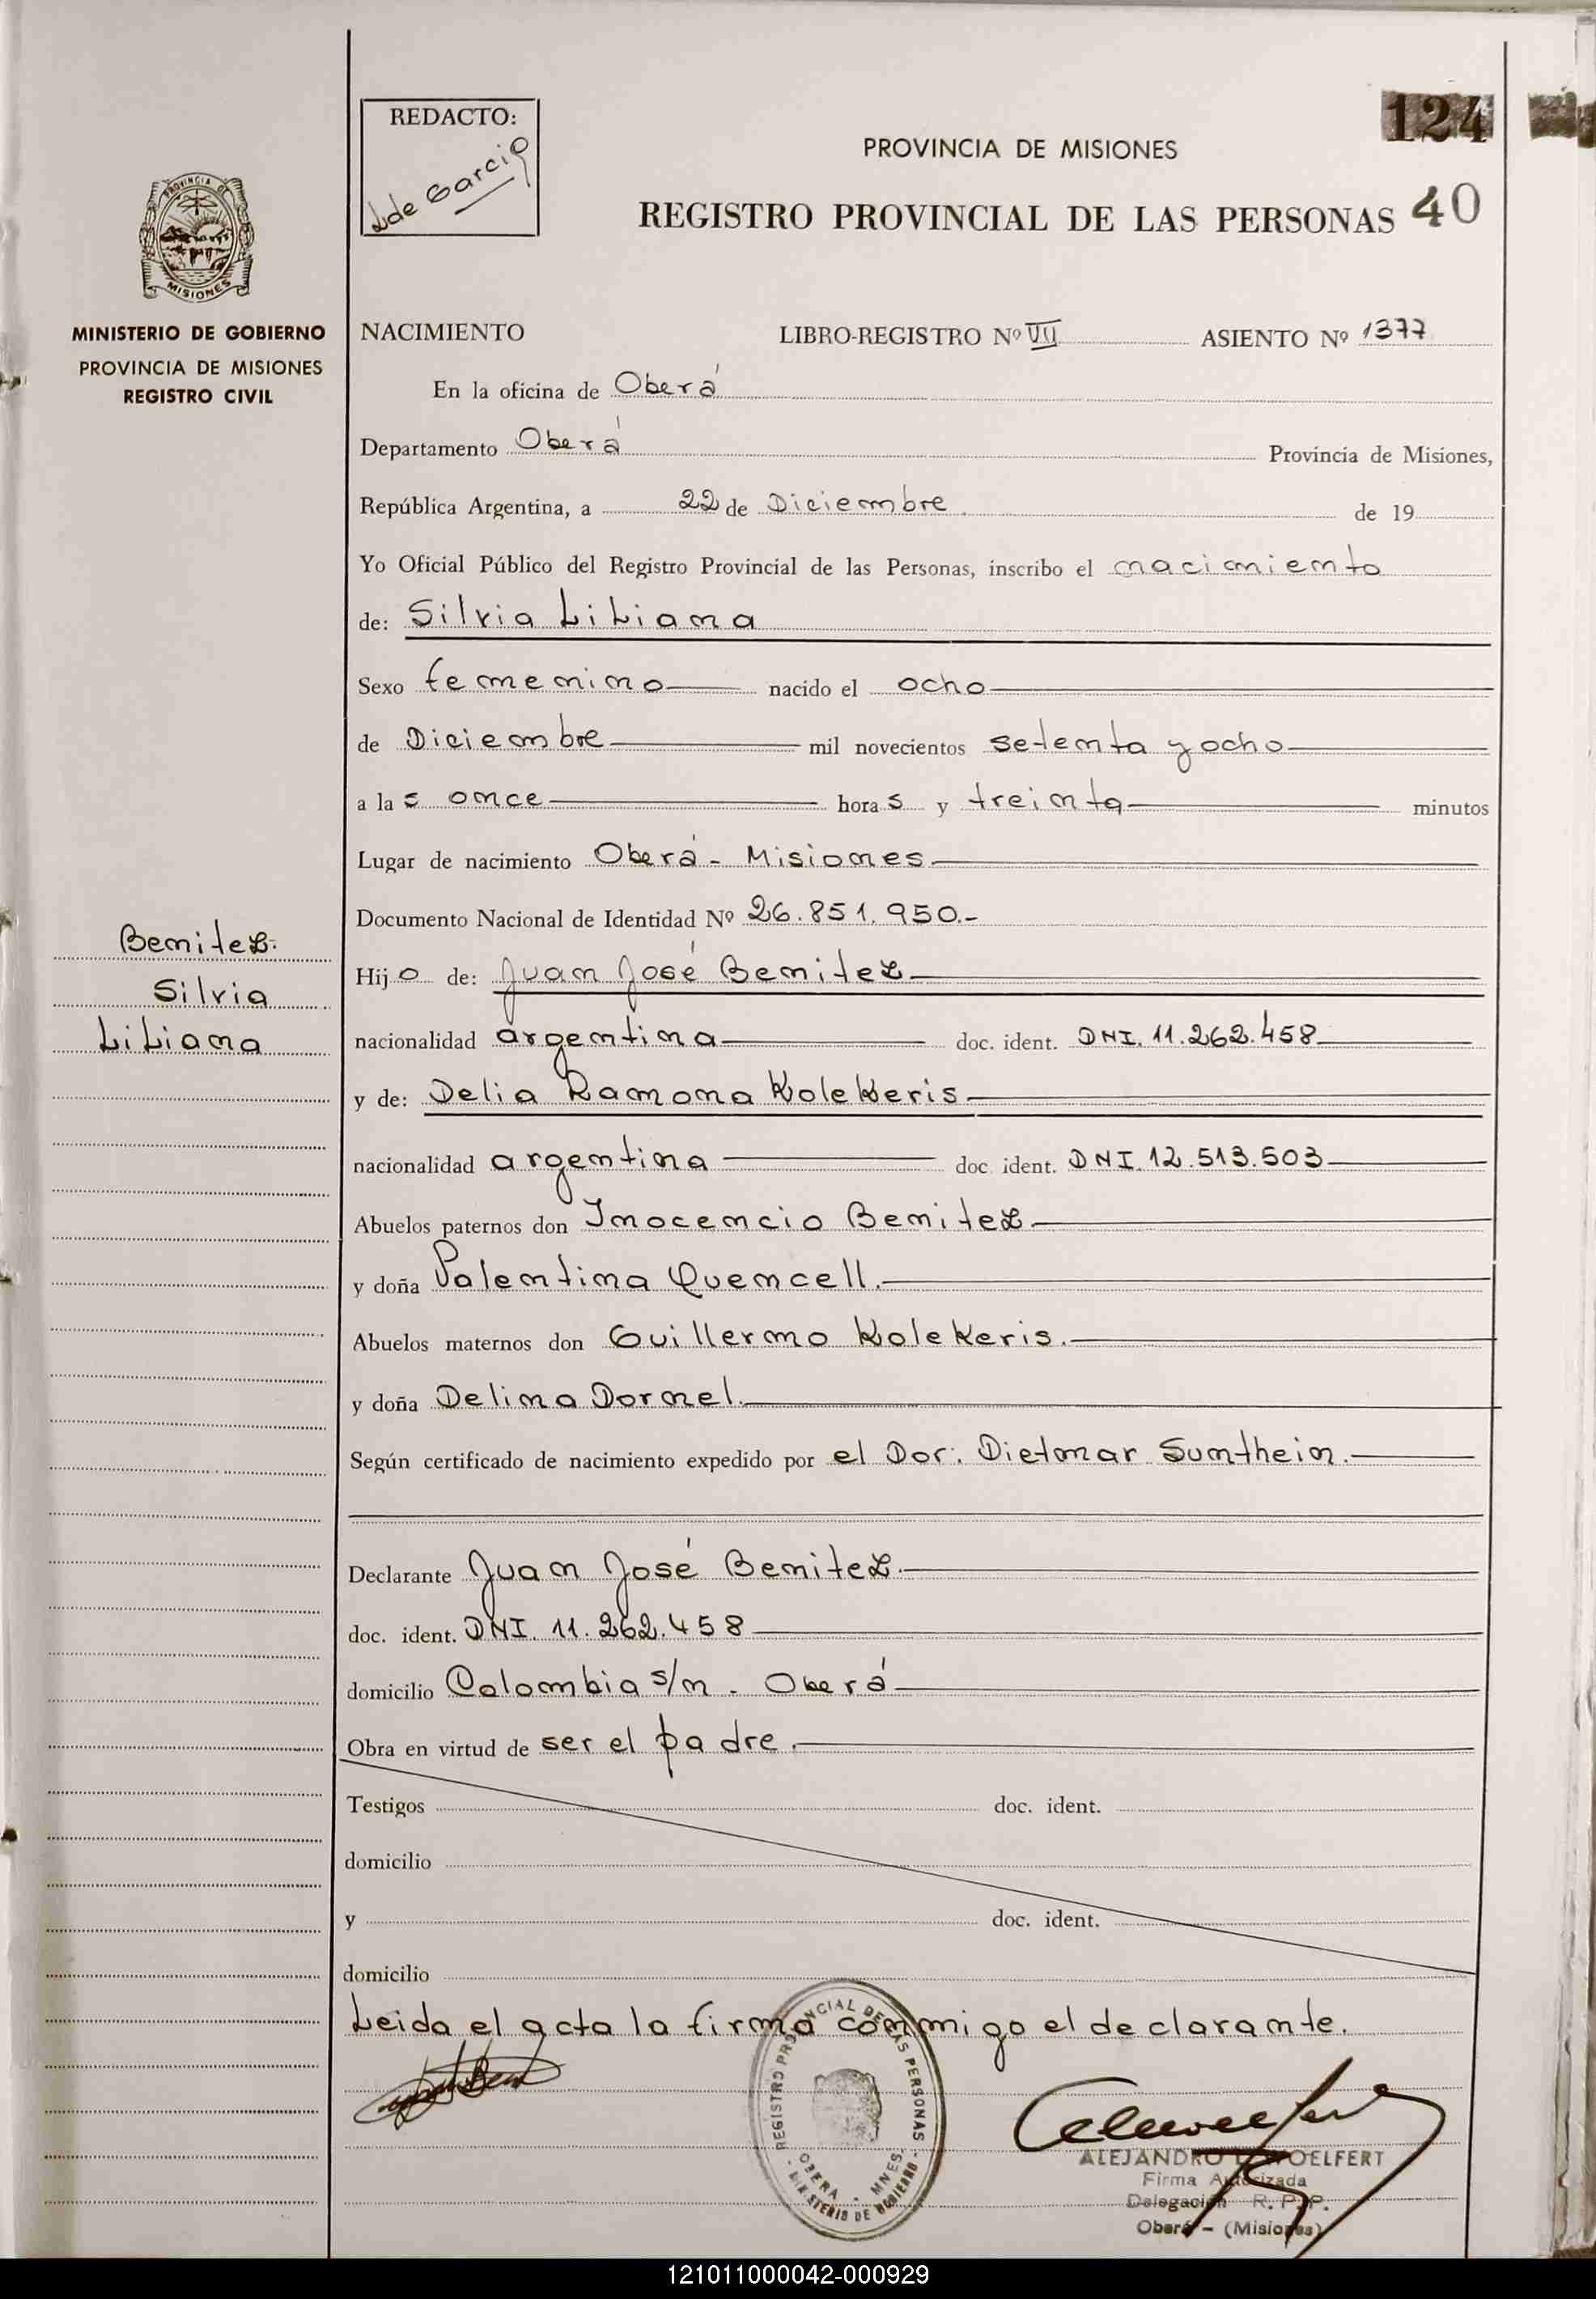 REDACTO:
L de Garcia
124
PROVINCIA DE MISIONES
REGISTRO PROVINCIAL DE LAS PERSONAS 40
PROVINCIA DE
MISIONES
MINISTERIO DE GOBIERNO
PROVINCIA DE MISIONES
REGISTRO CIVIL
NACIMIENTO LIBRO-REGISTRO Nº VII ASIENTO Nº 1377
En la oficina de Oberá
Departamento Oberá Provincia de Misiones,
República Argentina, a 22 de Diciembre de 19
Yo Oficial Público del Registro Provincial de las Personas, inscribo el nacimiento
de: Silvia Liliana
Sexo femenino nacido el ocho
de Diciembre mil novecientos setenta y ocho
a las once horas y treinta minutos
Lugar de nacimiento Oberá - Misiones
Documento Nacional de Identidad Nº 26.851.950.-
Benitez.
Silvia
Liliana
Hijo de: Juan José Benitez
nacionalidad argentina doc. ident. DNI. 11.262.458
y de: Delia Ramona Kolekeris
nacionalidad argentina doc. ident. DNI. 12.513.503
Abuelos paternos don Inocencio Benitez
y doña Valentina Quencell.
Abuelos maternos don Guillermo Kolekeris.
y doña Delina Dornel.
Según certificado de nacimiento expedido por el Dor. Dietmar Sunthein.
Declarante Juan José Benitez.
doc. ident. DNI. 11.262.458
domicilio Colombia s/n. Oberá
Obra en virtud de ser el padre.
Testigos doc. ident.
domicilio
y doc. ident.
domicilio
Leida el acta la firma conmigo el declarante.
REGISTRO PROVINCIAL DE LAS PERSONAS
OBERA - MNES.
MINISTERIO DE GOBIERNO
ALEJANDRO WOELFERT
Firma Autorizada
Delegación R. P. P.
Oberá - (Misiones)
121011000042-000929